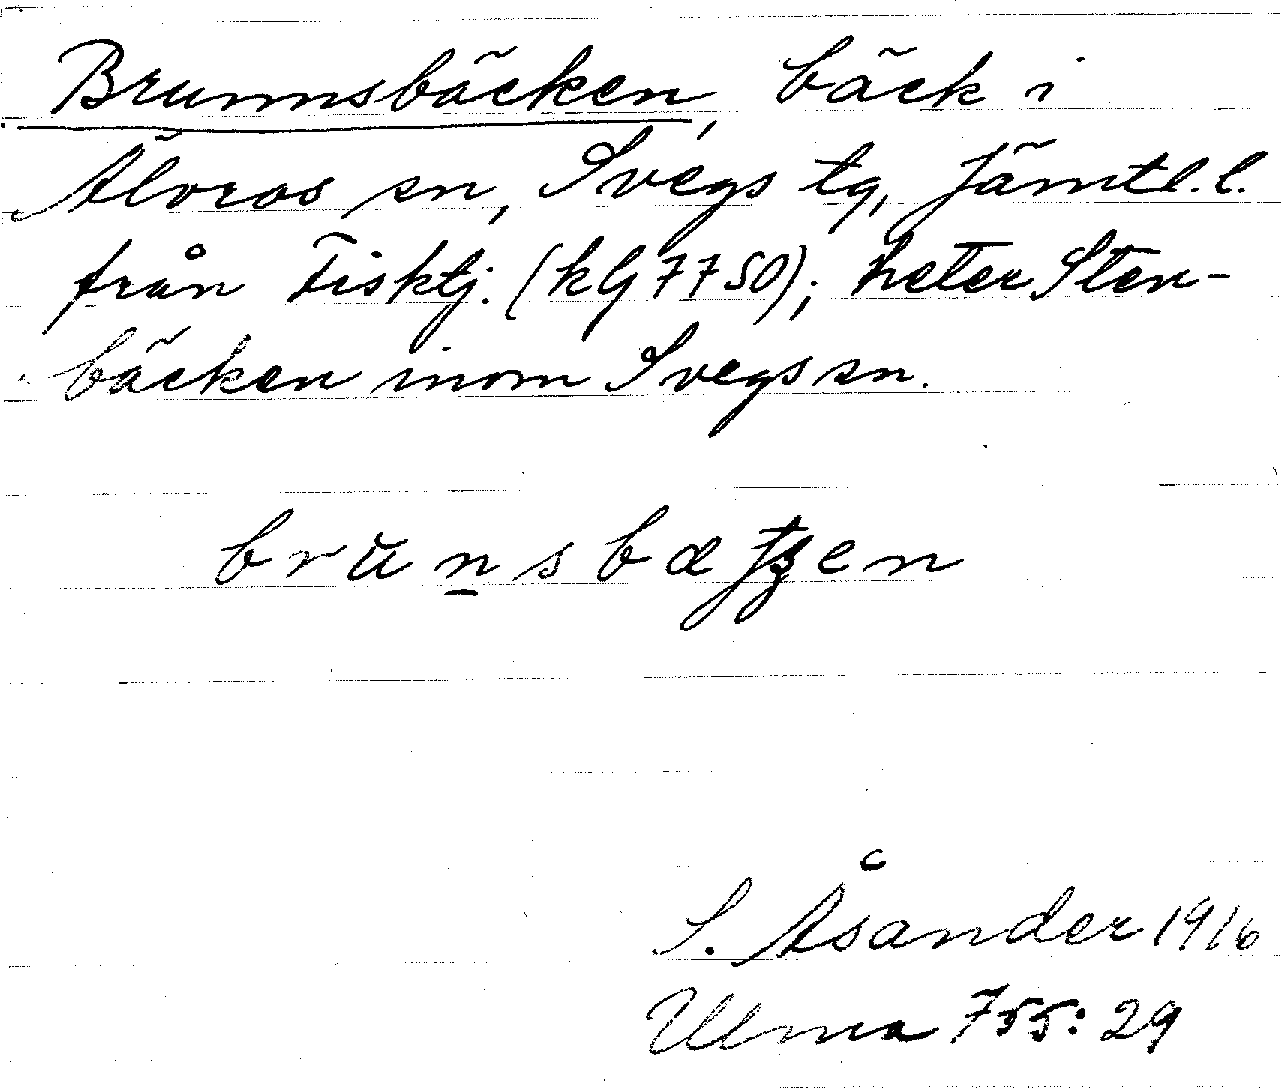 Brunnsbäcken, bäck i
Älvros sn, Svegs tg, Jämtl.l.
från Fisktj. (kG7750); heter Sten-
bäcken inom Svegs sn.
S. Åsander 1916
Ulma 755: 29